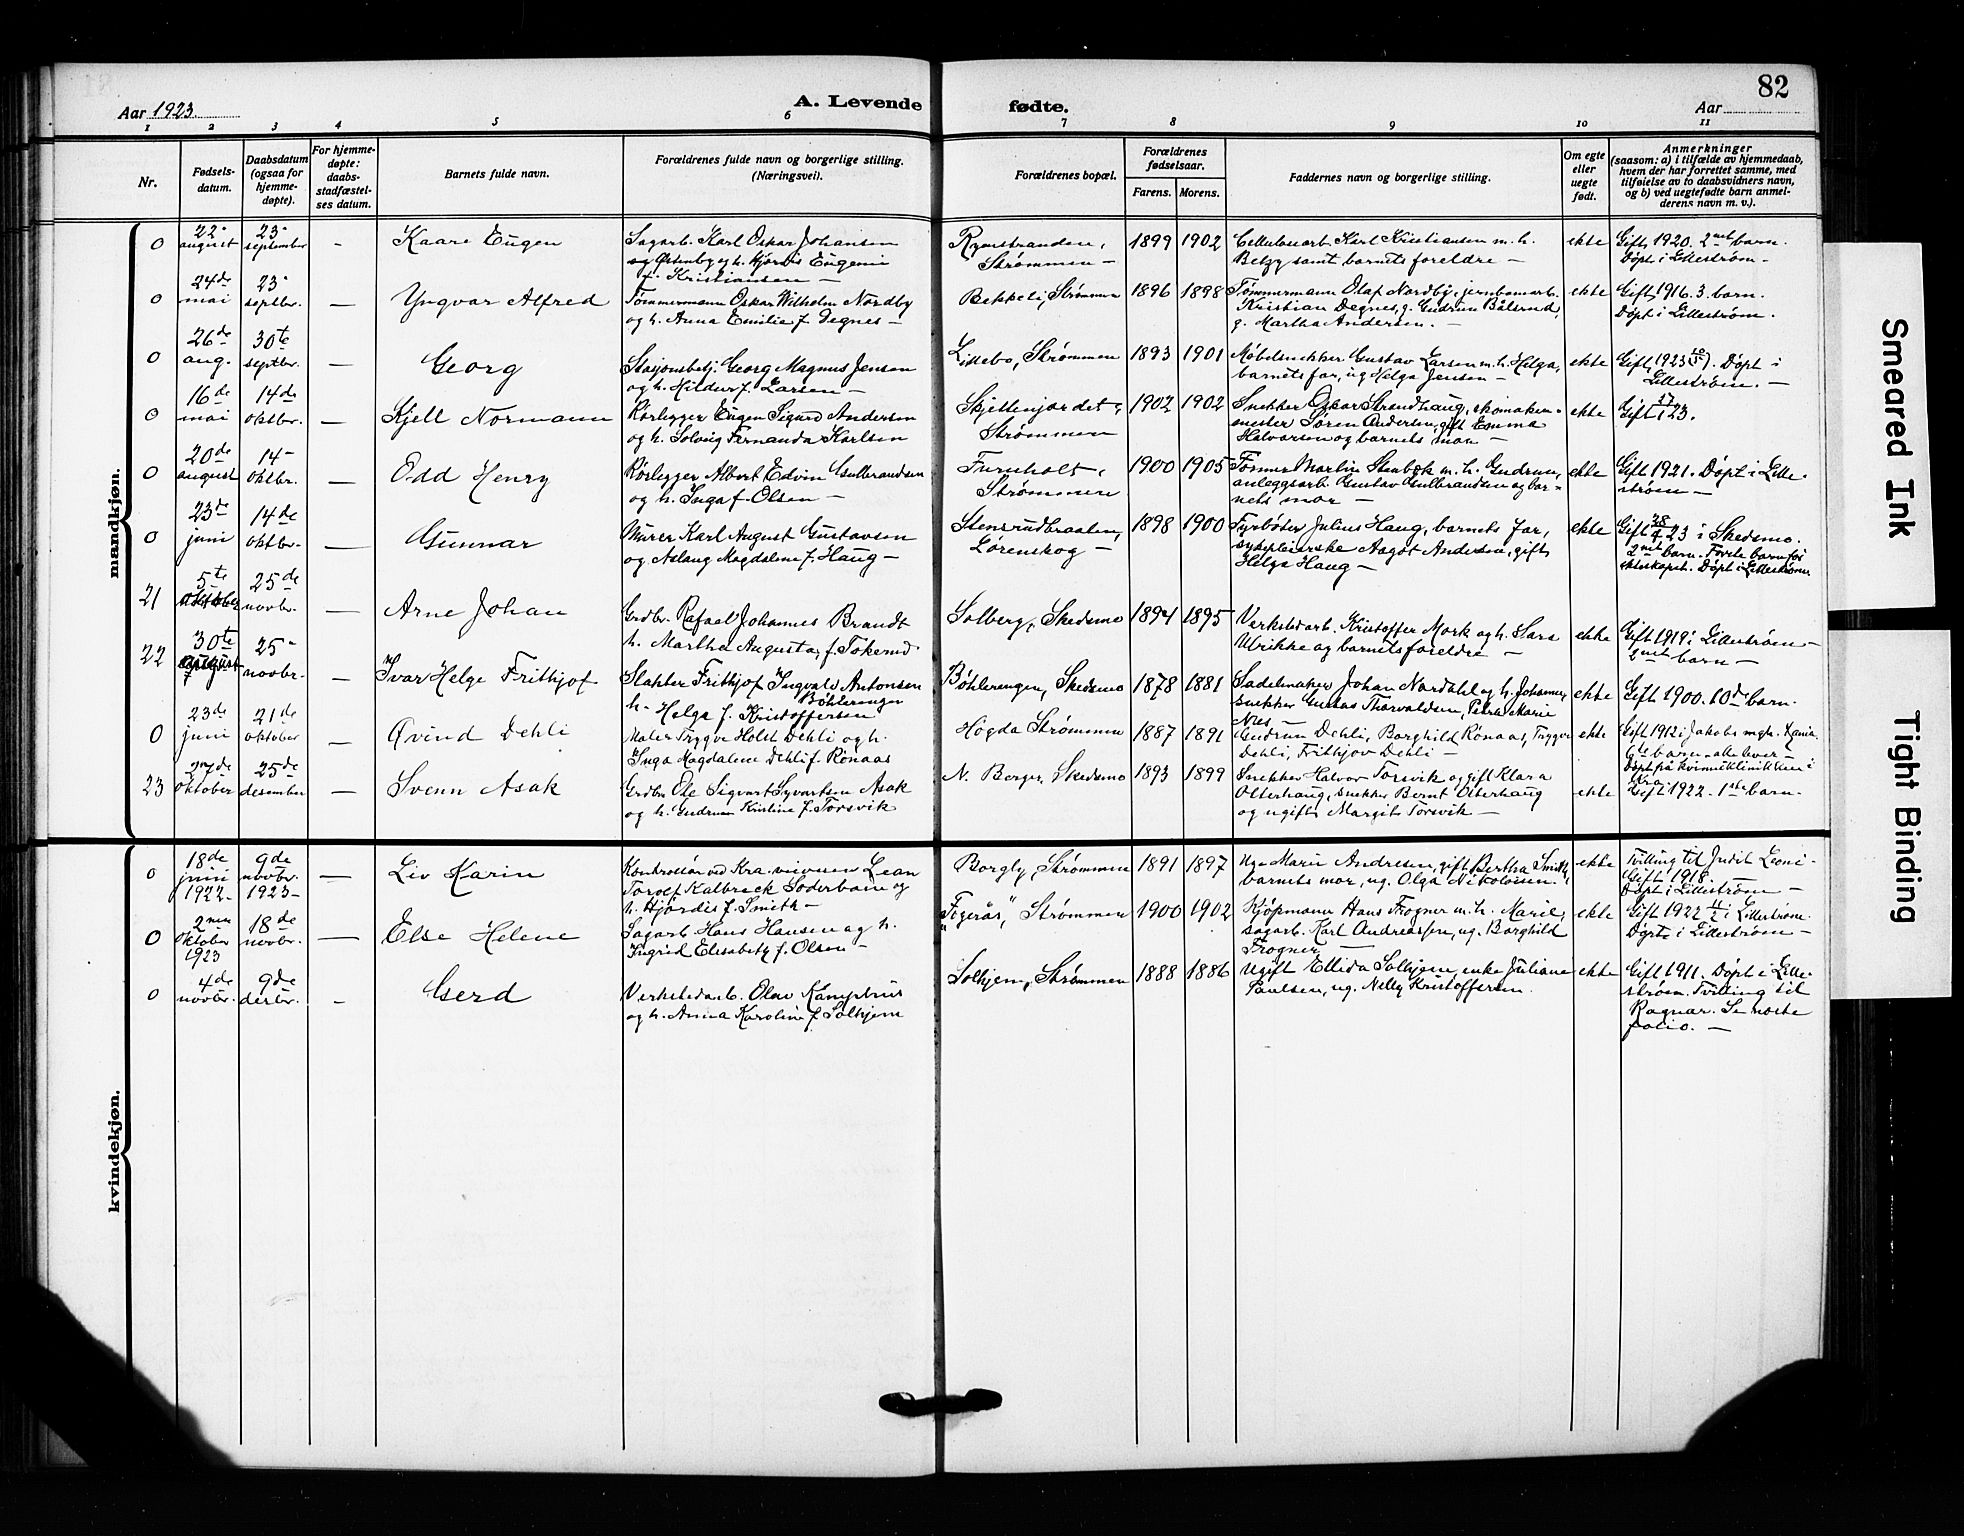 82
Aar 1923.
A. Levende
fødte.
Aar
1 2 3 4 5 6 7 8 9 10 11
Nr.
Fødsels-
datum.
Daabsdatum
(ogsaa for
hjemme-
døpte).
For hjemme-
døpte:
daabs-
stadfæstel-
ses datum.
Barnets fulde navn.
Forældrenes fulde navn og borgerlige stilling.
(Næringsvei).
Forældrenes bopæl.
Forældrenes
fødselsaar.
Farens.
Morens.
Faddernes navn og borgerlige stilling.
Om egte
eller
uegte
født.
Anmerkninger
(saasom: a) i tilfælde av hjemmedaab,
hvem der har forrettet samme, med
tilføielse av to daabsvidners navn,
og b) ved uegtefødte barn anmel-
derens navn m. v.).
mandkjøn.
0
22-
august
23-
september
-
Kaare Eugen
Sagarb. Karl Oskar Johansen
og Østenby og h. Hjørdis Eugenie
f. Kristiansen -
Strømmen -
1899
1902
Cellulosearb. Karl Kristiansen m. h.
Betzy samt barnets foreldre -
ekte
Gift 1920. 2net barn.
Døpt i Lillestrøm -
0
24de
mai
23-
septbr.
-
Yngvar Alfred
Tømmermann Oskar Wilhelm Nordby
og h. Anna Emilie f. Degnes -
Bekkeli, Strømmen
1896
1898
Tømmermann Olaf Nordby, jernbanearb.
Kristian Degnes, g. Gudrun Bålsrud,
g. Martha Andersen. -
ekte
Gift 1916. 3. barn.
Døpt i Lillestrøm.
0
26de
aug.
30te
septbr.
-
Georg
Stasjonsbetj. Georg Magnus Jensen
og h. Hildur f. Larsen -
Lillebo, Strømmen
1893
1901
Møbelsnekker Gustav Larsen m. h. Helga,
barnets far, ug Helga Jensen -
ekte
Gift 1923. Døpt i
Lillestrøm. -
0
16de
mai
14de
oktbr.
-
Kjell Normann
Rørlegger Eugen Sigurd Andersen
og h. Solveig Fernanda Karlsen
Skjettenjordet,
Strømmen
1902
1902
Snekker Oskar Strandhaug, skomaker-
mester Søren Andersen, gift Emma
Halvorsen og barnets mor -
ekte
Gift 23.
0
20de
august
14-
oktbr.
-
Odd Henry
Rørlegger Albert Edvin Gulbrandsen
og h. Inga f. Olsen -
Furuholt,
Strømmen
1900
1905
Former Martin Stenbæk m. h. Gudrun,
anleggsarb. Gustav Gulbrandsen og bar-
nets mor -
ekte
Gift 1921. Døpt i Lille-
strøm -
0
23de
juni
14de
oktbr.
-
Gunnar
Murer Karl August Gustavsen
og Aslaug Magdalene f. Haug -
Stensrudbraaten,
Lørenskog -
1898
1900
Fyrbøter Julius Haug, barnets far,
sykepleierske Aagot Andersen, gift
Helga Haug -
ekte
Gift 28/4 23 i Skedsmo.
2net barn. Første barn før
ekteskapet. Døpt i Lillestrøm
21
5te
oktober
25de
novbr.
-
Arne Johan
Grdbr. Rafael Johannes Brandt
h. Martha Augusta, f. Tokerud
Solberg, Skedsmo
1894
1895
Verkstedarb. Kristoffer Mork og h. Sara
Ulrikke og barnets foreldre -
ekte
Gift 1919 i Lillestrøm -
2net barn -
22
30te
august
25-
novbr.
-
Ivar Helge Frithjof
Slakter Frithjof Ingvald Antonsen
Böhlerengen
h. Helga f. Kristoffersen
Böhlerengen, Skedsmo
1878
1881
Sadelmaker Johan Nordahl og h. Johanne,
snekker Gustav Thorvaldsen, Petra Marie
Næs -
ekte
Gift 1900. 10de barn.
0
23de
juni
21de
oktober
-
Øvind Dehli
Maler Trygve Holst Dehli og h.
Inga Magdalene Dehli f. Rönaas
Høgda Strømmen
1887
1891
Gudrun Dehli, Borghild Rönaas, Trygve
Dehli, Frithjov Dehli -
ekte
Gift 1912 i Jakobs mgh. Krania.
6te barn - alle lever
Døpt på kvinneklinikken i
Kra.
23
27de
oktober
25de
desember
-
Svenn Asak
Grdbr. Ole Sigvart Syvertsen Asak
og h. Gudrun Kristine f. Torsvik
N. Berger, Skedsmo
1893
1899
Snekker Halvor Torsvik og gift Klara
Otterhaug, snekker Bernt Otterhaug
og ugift Margit Torsvik -
ekte
Gift 1922. 1ste barn.
kvindekjøn.
0
18de
juni
1922-
9de
novbr.
1923-
-
Liv Karin
Kontrollør ved Kra. Lean
Torolf Kalbreck Soderbom og
h. Hjørdis f. Smith -
Borgly, Strømmen
1891
1897
Ug. Marie Andresen, gift Bertha Smith,
barnets mor, ug. Olga Nikolaisen.
ekte
Tvilling til Judit Leoni-
Gift 1918.
Døpt i Lillestrøm -
0
2nen
oktober
1923
18de
novbr.
-
Else Helene
Sagarb. Hans Hansen og h.
Ingrid Elisabeth f. Olsen -
"Fogerås", Strømmen
1900
1902
Kjøpmann Hans Frogner m. h. Marie,
sagarb. Karl Andreassen, ug. Borghild
Frogner -
ekte
Gift 1922 11/2 i Lillestrøm.
Døpt i Lillestrøm -
0
4de
novbr.
9de
desbr.
-
Gerd
Verkstedarb. Olav Kampbrus
og h. Anna Karoline f. Solhjem
Solhjem, Strømmen
1888
1886
Ugift Ellida Solhjem, enke Juliane
Paulsen, ug. Nelly Kristoffersen.
ekte
Gift 1911. Døpt i Lille-
strøm. Tvilling til
Ragnar. Se næste
folio. -
Smeared Ink
Tight Binding